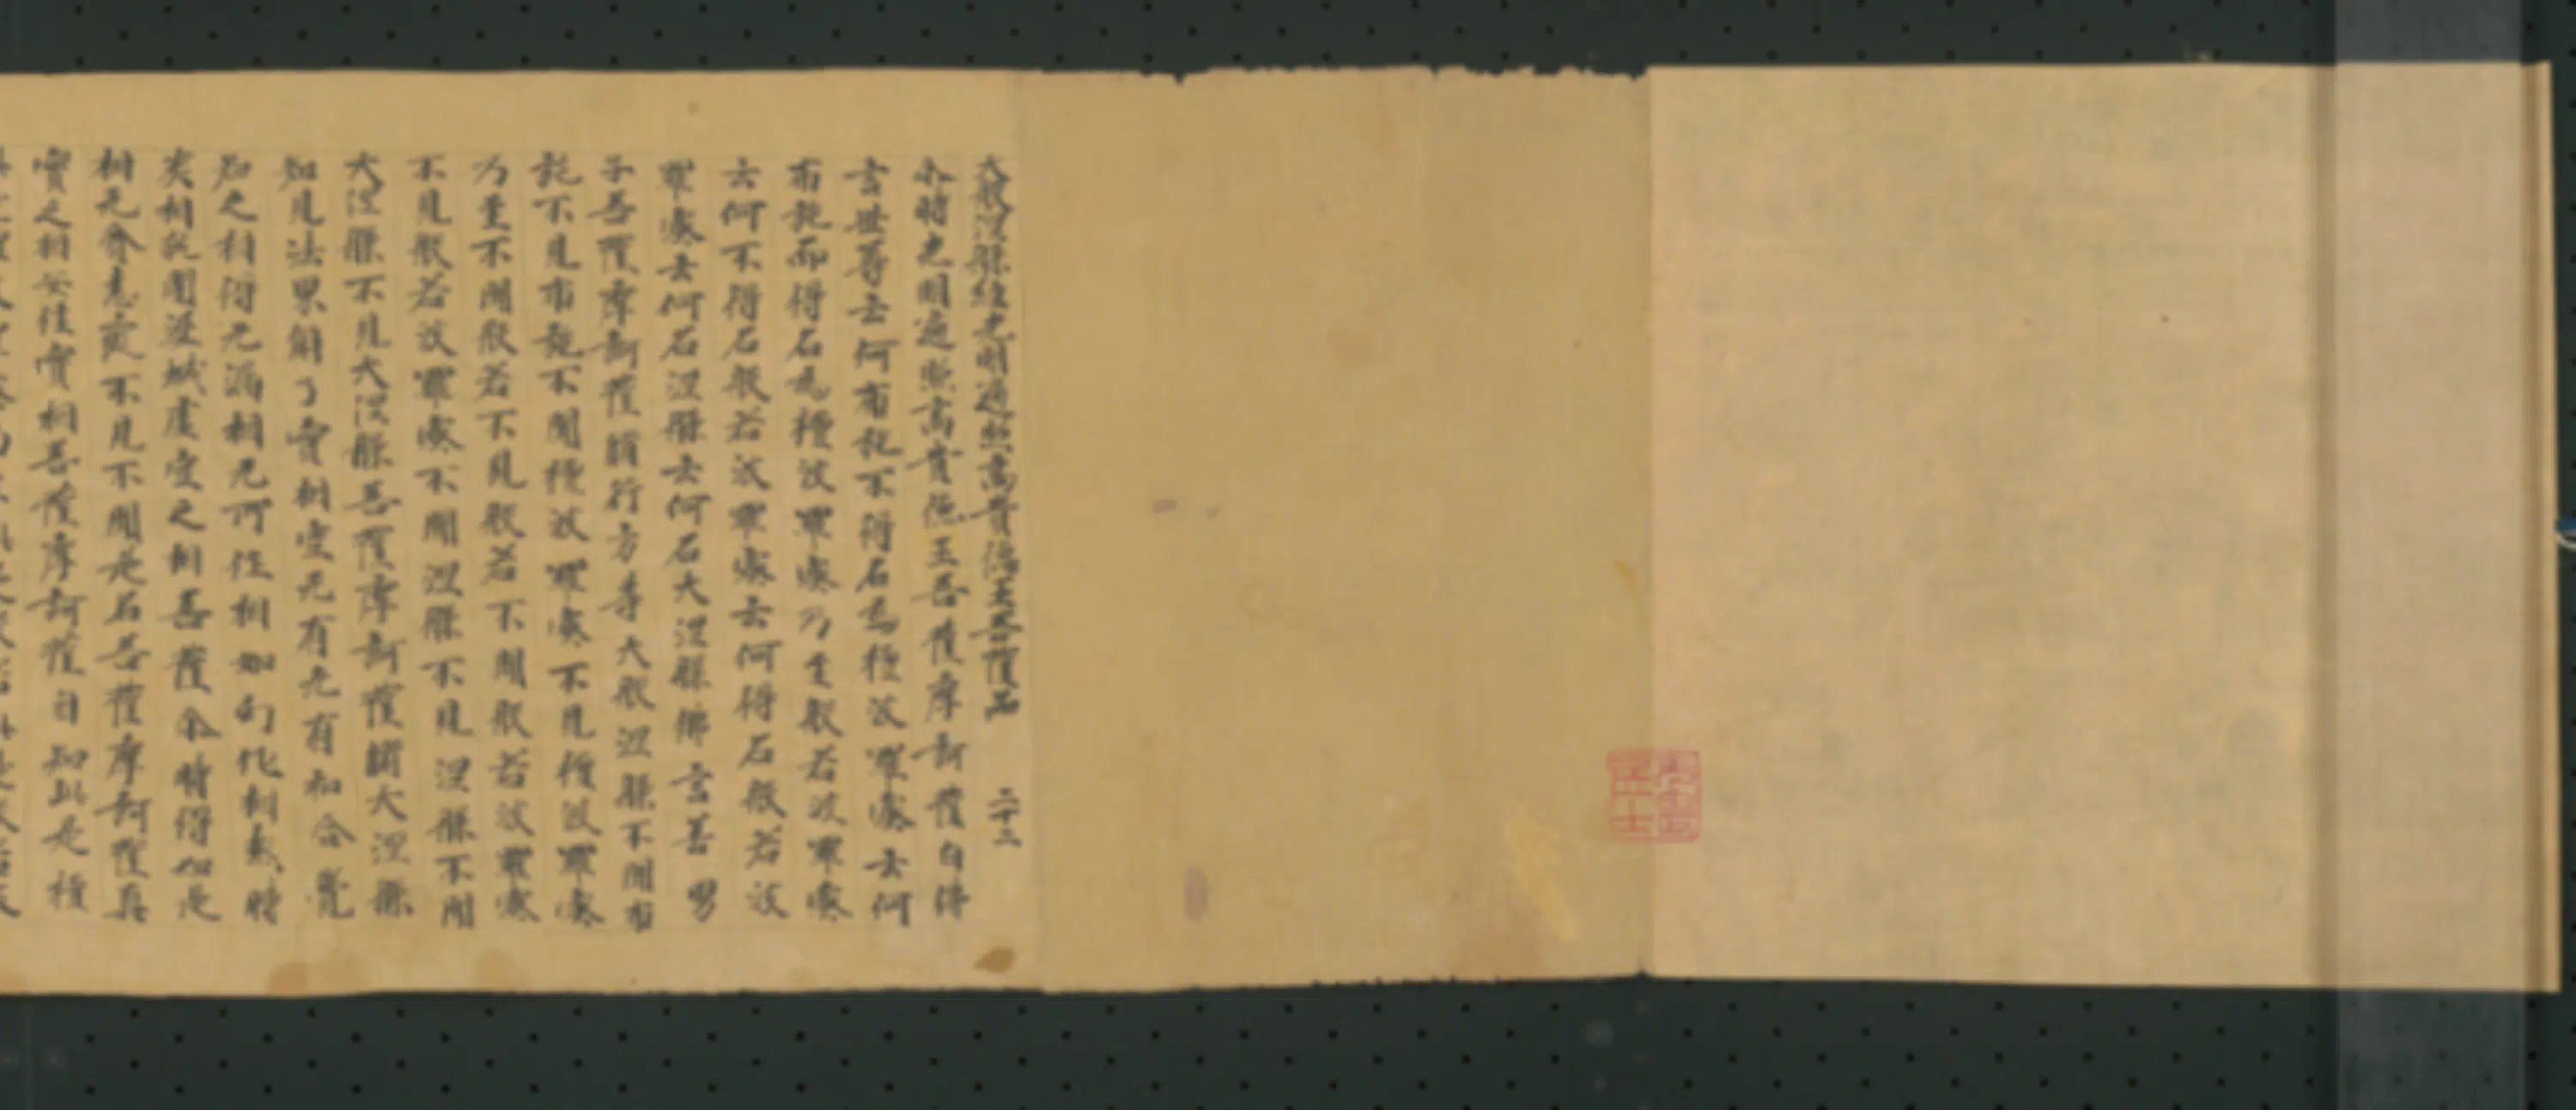 大般涅槃經光明遍照高貴德王菩薩品 二十二
尒時光明遍照高貴德王菩薩摩訶薩白佛
言世尊云何布施不得名為檀波羅蜜云何
布施而得名為檀波羅蜜乃至般若波羅蜜
云何不得名般若波羅蜜云何得名般若波
羅蜜云何名涅槃云何名大涅槃佛言善男
子菩薩摩訶薩脩行方等大般涅槃不聞布
施不見布施不聞檀波羅蜜不見檀波羅蜜
乃至不聞般若不見般若不聞般若波羅蜜
不見般若波羅蜜不聞涅槃不見涅槃不聞
大涅槃不見大涅槃菩薩摩訶薩脩大涅槃
知見法界解了實相空无有无有和合覺
知之相得无漏相无所作相如幻化相熱時
炎相乾闥婆城虛空之相菩薩尒時得如是
相无貪恚癡不見不聞是名菩薩摩訶薩真
實之相安住實相菩薩摩訶薩自知此是檀